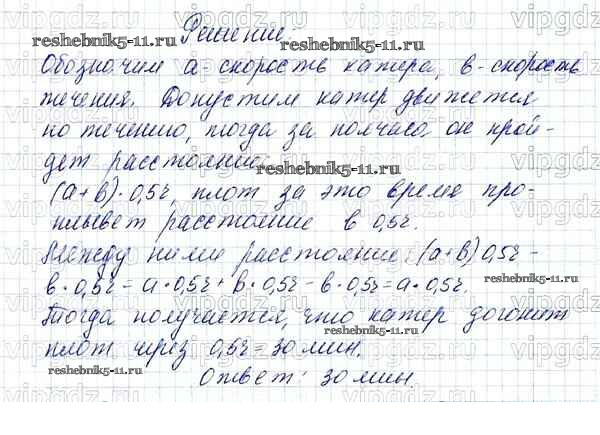 Решение.
Обозначим а - скорость катера, в - скорость
течения. Допустим катер движется
по течению, тогда за полчаса он прой-
дет расстояние:
(а+в)·0,5ч, плот за это время про-
плывет расстояние в 0,5ч.
Между ними расстояние: (а+в)0,5ч -
в·0,5ч = а·0,5ч + в·0,5ч - в·0,5ч = а·0,5ч.
Тогда получается, что катер догонит
плот через 0,5ч = 30 мин.
Ответ: 30 мин.
reshebnik5-11.ru
reshebnik5-11.ru
reshebnik5-11.ru
reshebnik5-11.ru
reshebnik5-11.ru
reshebnik5-11.ru
reshebnik5-11.ru
vipgdz
vipgdz
vipgdz